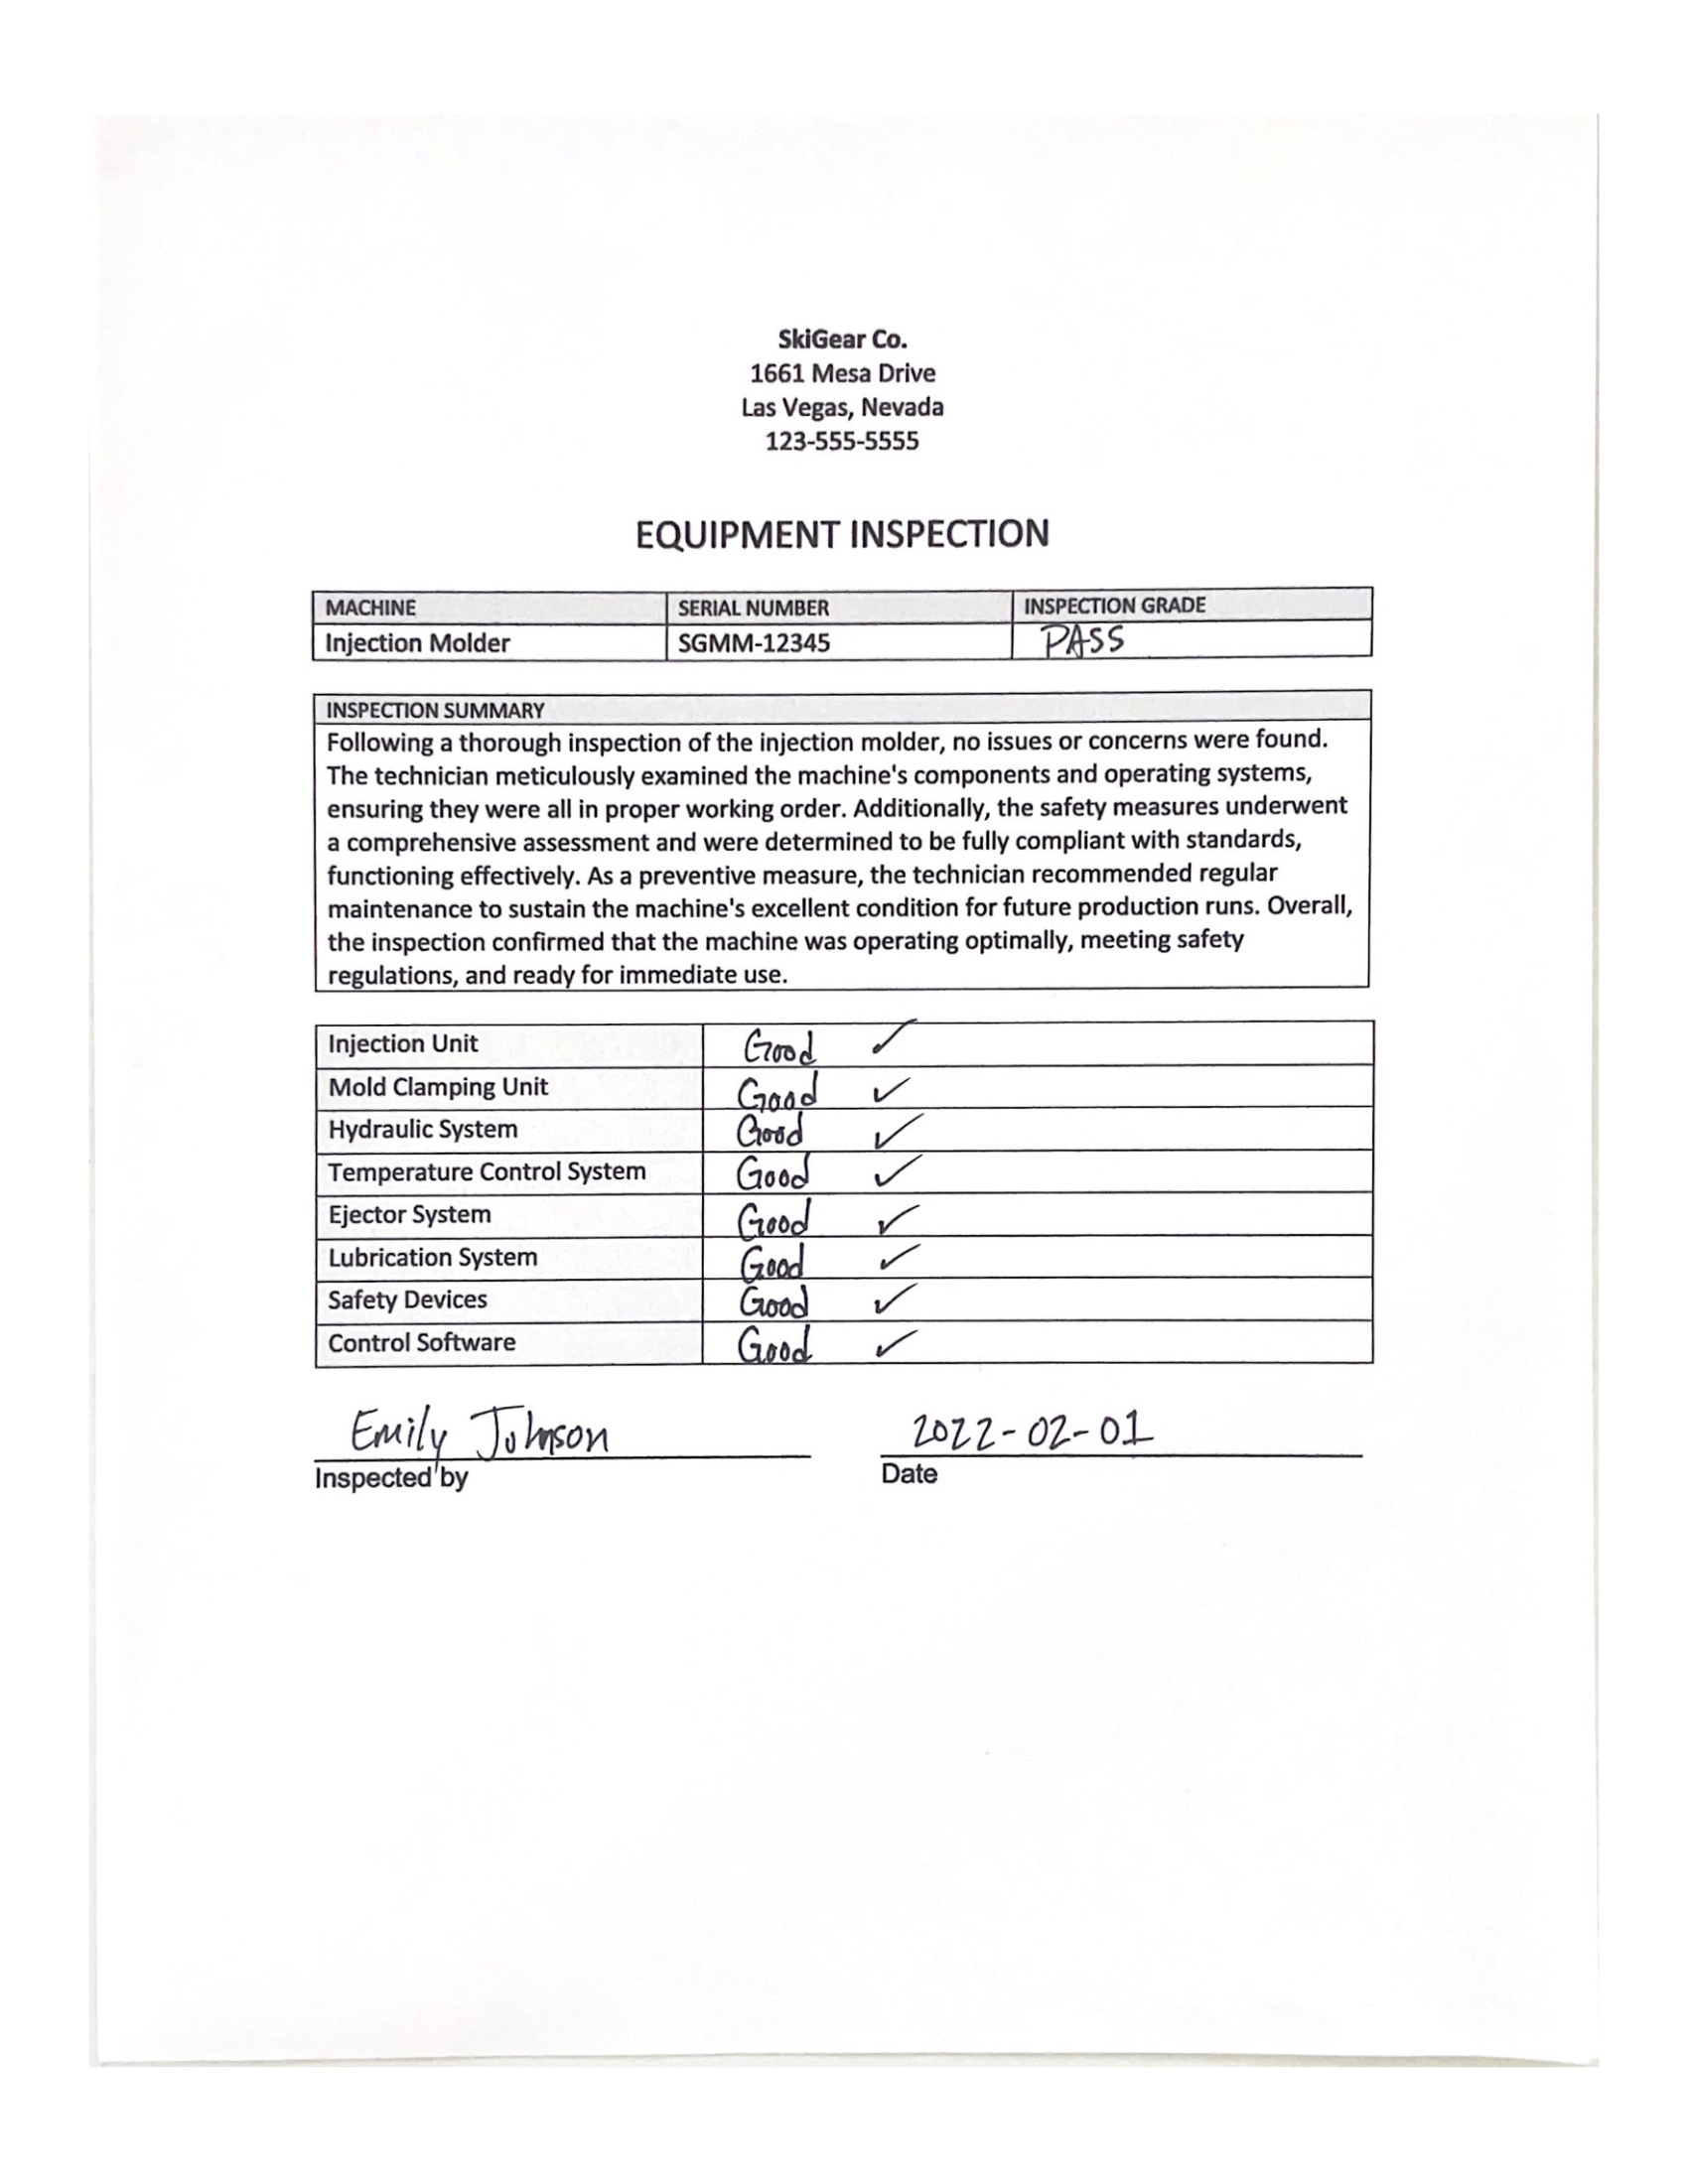 SkiGear Co.
1661 Mesa Drive
Las Vegas, Nevada
123-555-5555
EQUIPMENT INSPECTION
MACHINE SERIAL NUMBER INSPECTION GRADE
Injection Molder SGMM-12345 PASS
INSPECTION SUMMARY
Following a thorough inspection of the injection molder, no issues or concerns were found.
The technician meticulously examined the machine's components and operating systems,
ensuring they were all in proper working order. Additionally, the safety measures underwent
a comprehensive assessment and were determined to be fully compliant with standards,
functioning effectively. As a preventive measure, the technician recommended regular
maintenance to sustain the machine's excellent condition for future production runs. Overall,
the inspection confirmed that the machine was operating optimally, meeting safety
regulations, and ready for immediate use.
Injection Unit Good ✓
Mold Clamping Unit Good ✓
Hydraulic System Good ✓
Temperature Control System Good ✓
Ejector System Good ✓
Lubrication System Good ✓
Safety Devices Good ✓
Control Software Good ✓
Emily Johnson 2022-02-01
Inspected by Date